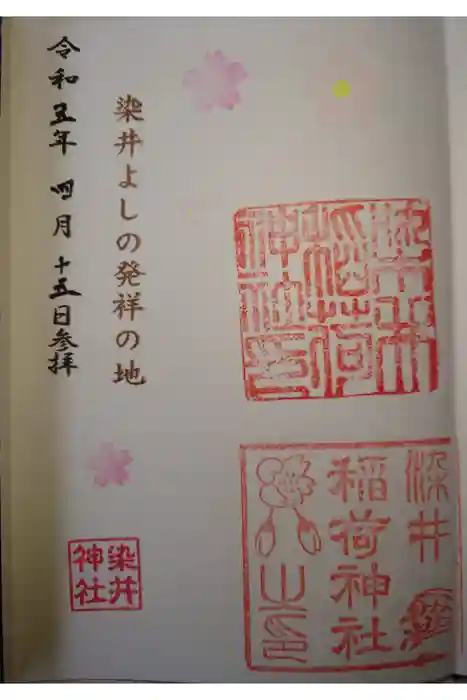 染井
稲荷
神社印
染井
稲荷神社
之印
染井よしの発祥の地
令和五年 四月 十五日参拝
染井
神社